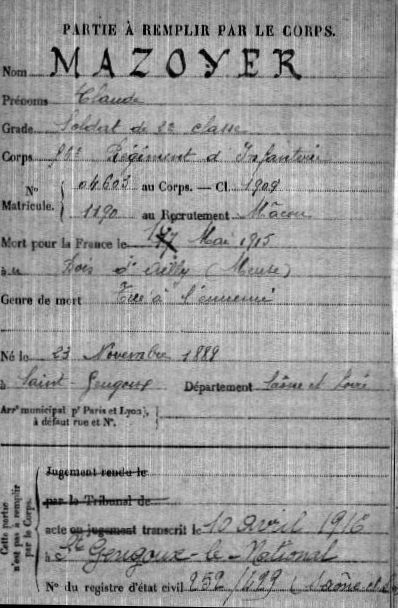 PARTIE À REMPLIR PAR LE CORPS.
Nom MAZOYER
Prénoms Claude
Grade Soldat de 2e classe
Corps Régiment d'Infanterie
N° Matricule. { 04603 au Corps. — Cl. 1909
1190 au Recrutement Mâcon
Mort pour la France le Mai 1915
à u Bois d'Ailly (Meuse)
Genre de mort Tué à l'ennemi
Né le 23 Novembre 1889
à Saint-Gengoux Département Saône et Loire
Arrt municipal pr Paris et Lyon),
à défaut rue et N°.
Cette partie n'est pas à remplir par le Corps.
Jugement rendu le
par le Tribunal de
acte ou jugement transcrit le 10 avril 1916
à St Gengoux-le-National
N° du registre d'état civil 252/429 (Saône et